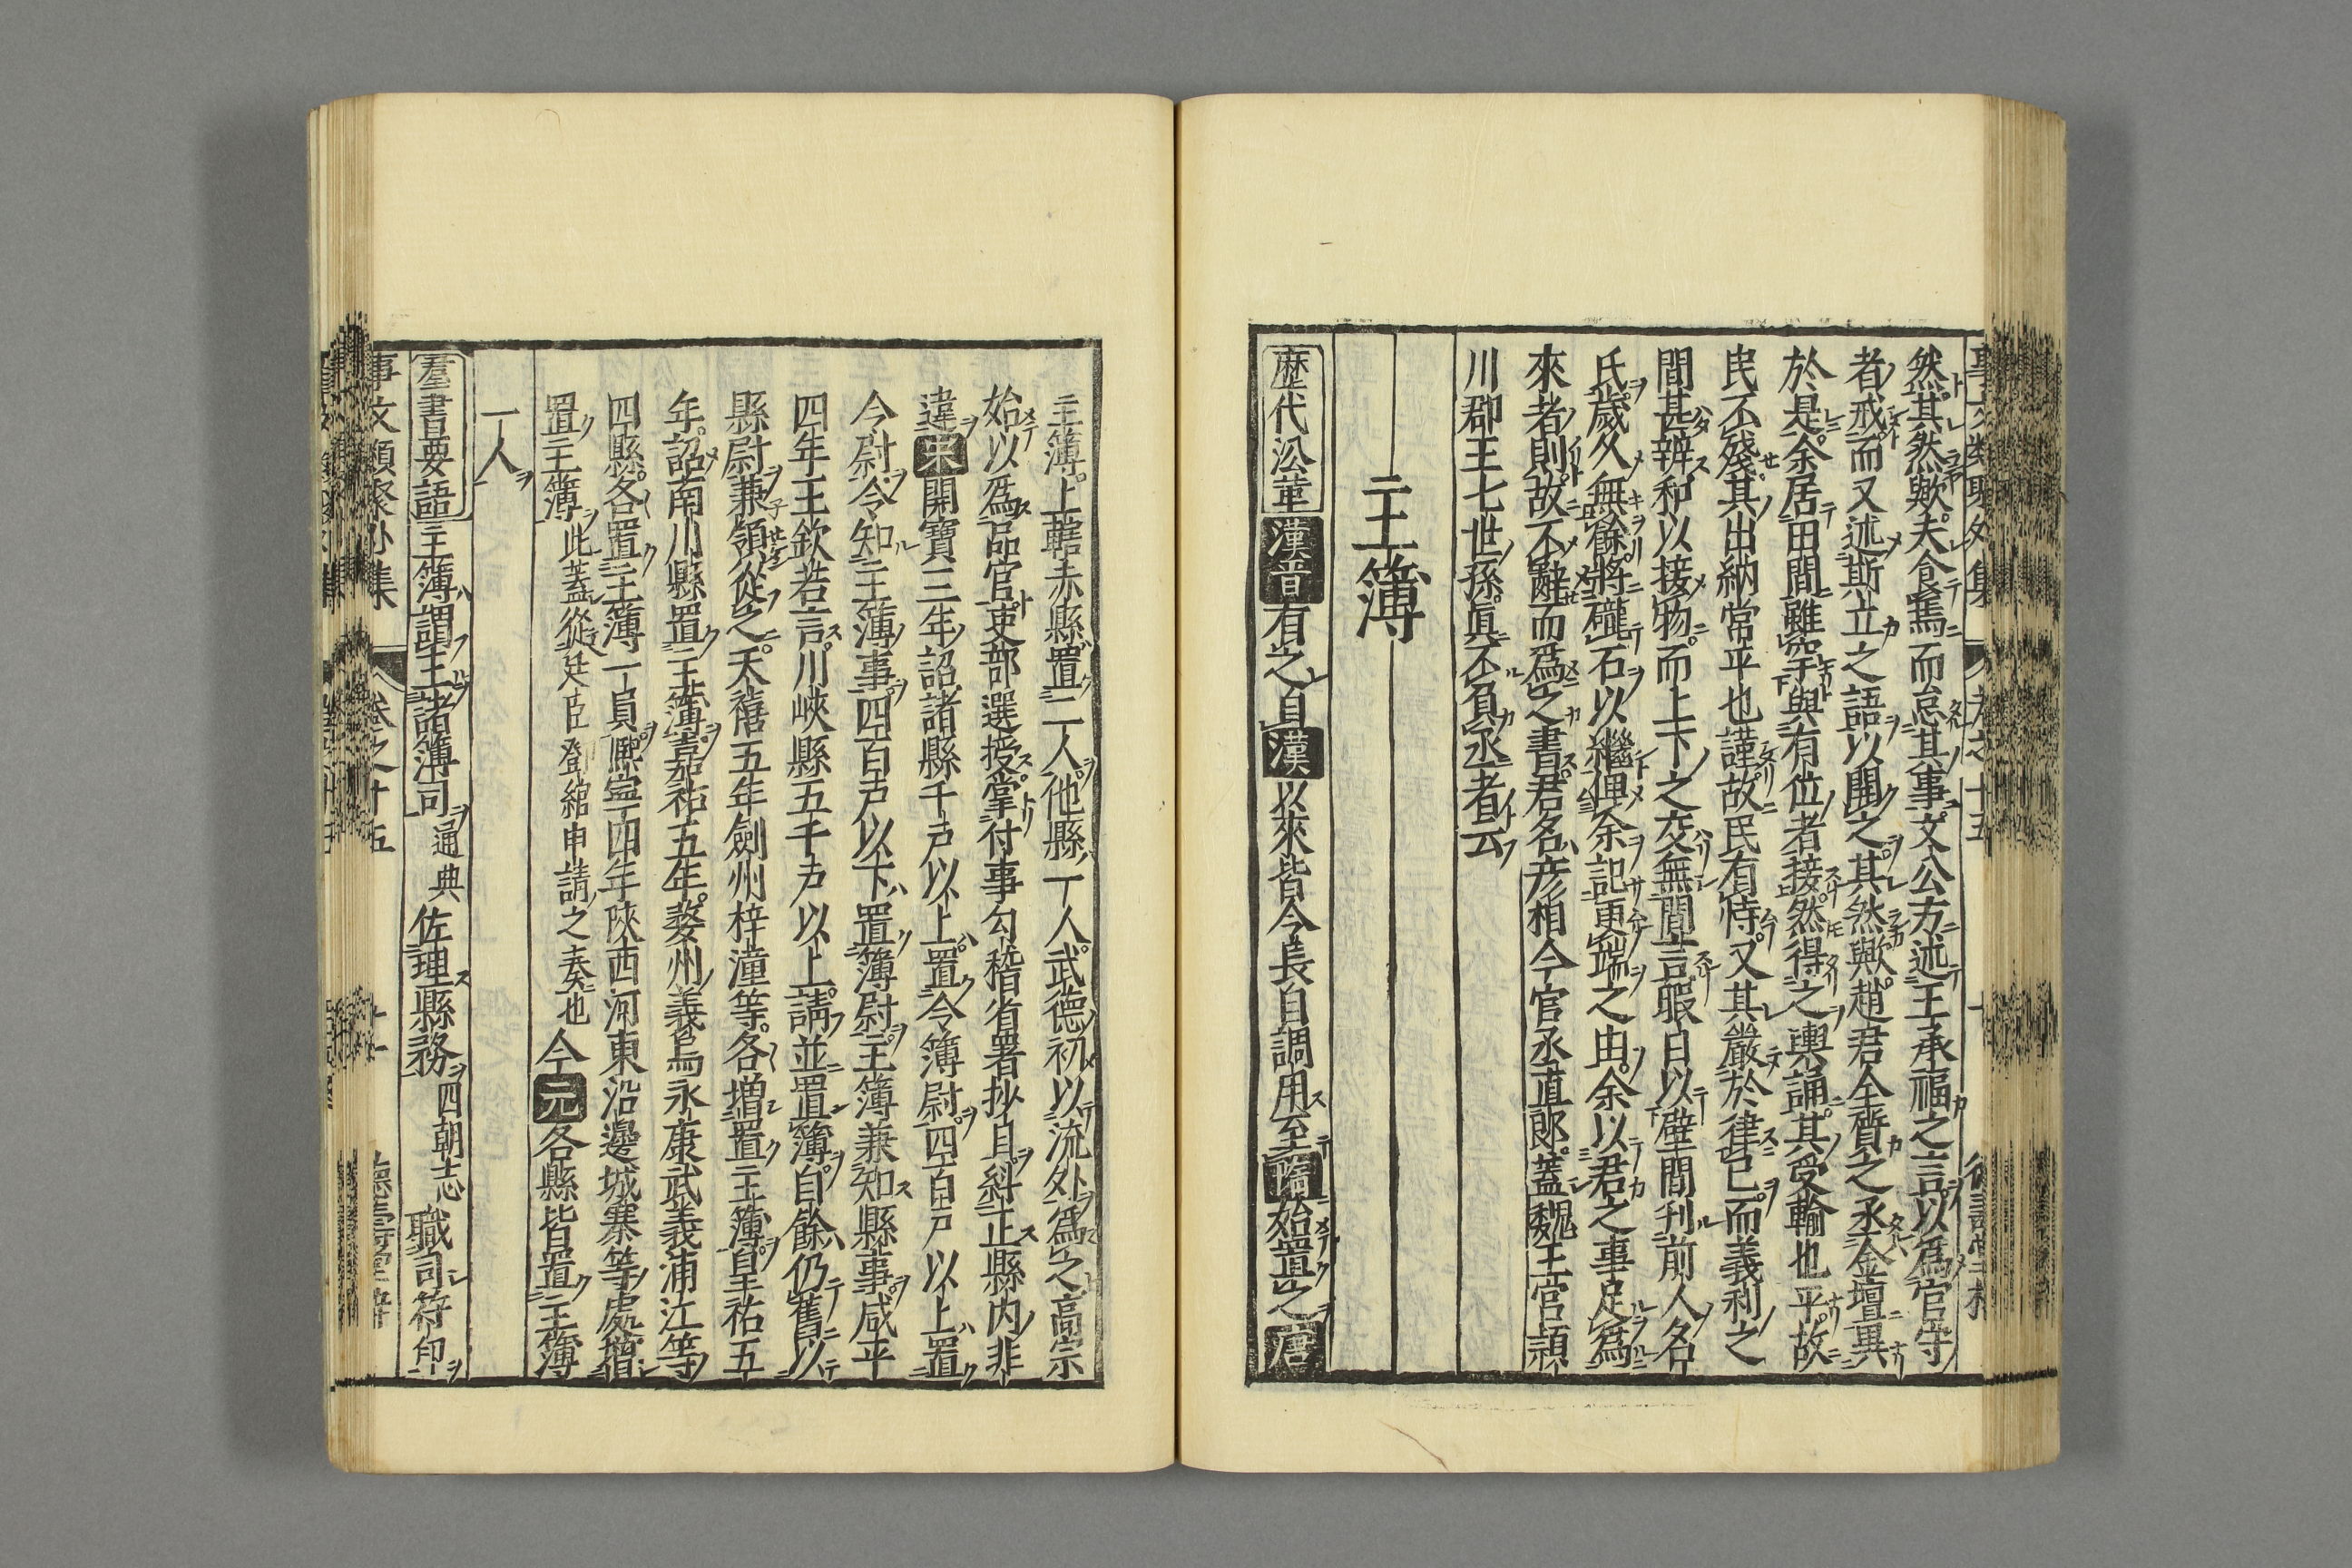 然其然歟夫食焉而怠其事文公方述王承福之言以爲官守
者戒而又述斯立之語以開之其然歟趙君全齊之丞金壇異
於是余居田間雖罕與有位者接然得之輿誦其受輸也平故
民不殘其出納常平也謹故民有恃又其嚴於律己而義利之
間甚辨和以接物而上下之交無間言暇日以壁間刋前人名
氏歲久無餘將礲石以繼俾余記更端之由余以君之事足爲
來者則故不辭而爲之書君名彦相今官丞直郎蓋魏王宫頴
川郡王七世孫眞不負丞者云
主簿
歴代沿革 漢晋有之自漢以來皆令長自調用至隋始置之唐
主簿上轄赤縣置二人他縣一人武德初以流外爲之高宗
始以爲品官吏部選授掌付事勾稽省署抄目糾正縣内非
違宋開寶三年詔諸縣千戸以上置令簿尉四百戸以上置
令尉令知主簿事四百戸以下置簿尉主簿兼知縣事咸平
四年王欽若言川峽縣五千戸以上請並置簿自餘仍舊以
縣尉兼領從之天禧五年劍州梓潼等各增置主簿皇祐五
年詔南川縣置主簿嘉祐五年婺州義烏永康武義浦江等
四縣各置主簿一員熈寧四年陜西河東沿邊城寨等處增
置主簿此蓋從廷臣鄧綰申請之奏也今元各縣皆置主簿
一人
羣書要語 主簿謂主諸簿司通典佐理縣務四朝志職司符印
事文類聚外集 卷之十五 十一 德壽堂梓